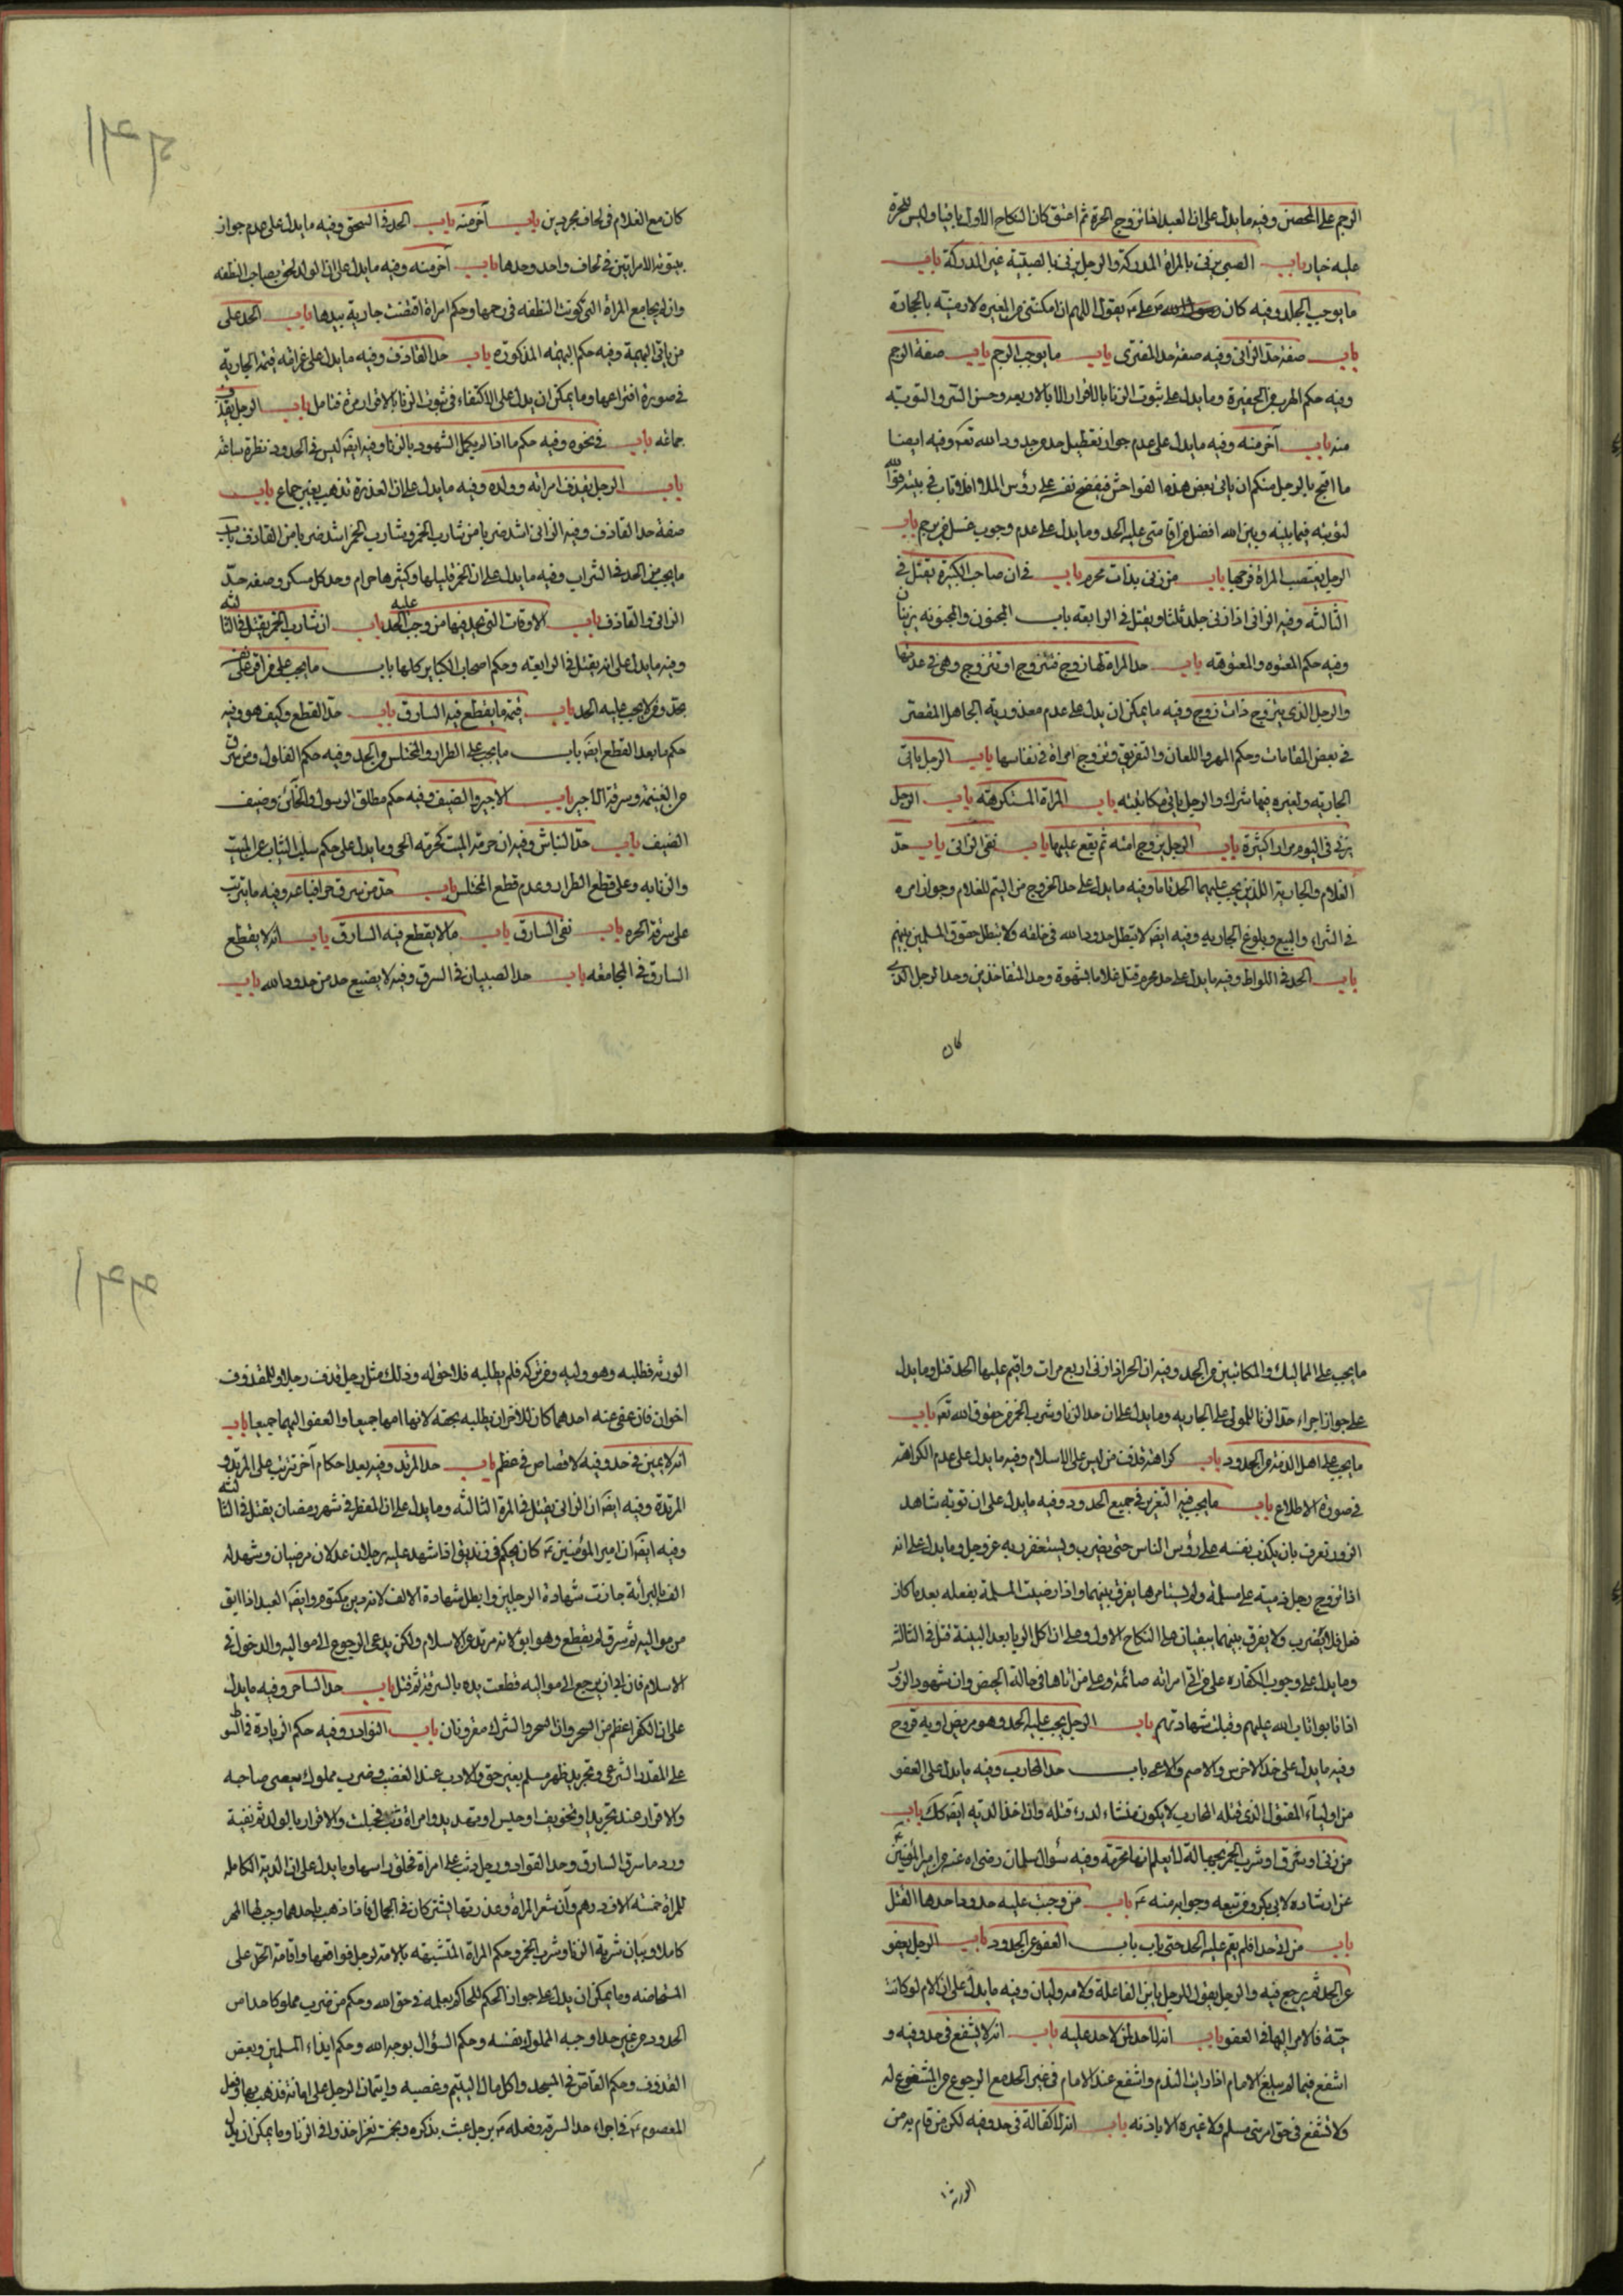 الرجم على المحصن وفيه ما يدل على ان العبد اذا تزوج الحرة ثم اعتق كان النكاح الاول باقيا وليس للحرة
عليه خيار باب الصبي يزني بالمراة المدركة والرجل يزني بالصبية غير المدركة باب
ما يوجب الجلد وفيه كان يقول اللهم ان امكنتني من المغيرة لارمينه بالحجارة
باب صفة حد الزاني وفيه صفة حد المفتري باب ما يوجب الرجم باب صفة الرجم
وفيه حكم الهرب من الحفيرة وما يدل على ثبوت الزنا بالاقرار الا بالاربعه وحسن الستر والتوبة
منه باب آخر منه وفيه ما يدل على عدم جواز تعطيل حد من حدود الله تعالى وفيه ايضا
ما اقبح بالرجل منكم ان ياتي بعض هذه الفواحش فيفضح نفسه على رؤس الملا افلا تاب في بيته فوالله
لتوبته فيما بينه وبين الله افضل من اقامتي عليه الحد وما يدل على عدم وجوب غسل من رجم باب
الرجل يغتصب المراة فرجها باب من زنى بذات محرم باب في ان صاحب الكبيرة يقتل في
الثالثه وفيه الزاني اذا زنى جلد ثلثا ويقتل في الرابعه باب المجنون والمجنونه يزنيان
وفيه حكم المعتوه والمعتوهة باب حد المراة لها زوج فتتزوج او تتزوج وهي في عدتها
والرجل الذي يتزوج ذات زوج وفيه ما يمكن ان يدل على عدم معذورية الجاهل المقصر
في بعض المقامات وحكم المهر واللعان والتفريق وتزوج امراة في نفاسها باب الرجل ياتي
الجاريه ولغيره فيها شرك والرجل ياتي مكاتبته باب المراة المستكرهة باب الرجل
يزني في اليوم مرارا كثيرة باب الرجل يزوج امته ثم يقع عليها باب نفي الزاني باب حد
الغلام والجارية اللذين يجب عليهما الحد تاما وفيه ما يدل على حد الخروج من اليتم للغلام وجواز امره
في الشراء والبيع وبلوغ الجاريه وفيه ايضا لا تبطل حدود الله في خلقه ولا تبطل حقوق المسلمين بينهم
باب الحد في اللواط وفيه ما يدل على حد محرم قبل غلاما بشهوة وحد المتفاخذين وحد الرجل الذي
كان
كان مع الغلام في لحاف مجردين باب آخر منه باب الحد في السحق وفيه ما يدل على عدم جواز
بيتوتة الامراتين في لحاف واحد وحدها باب آخر منه وفيه ما يدل على ان الولد يلحق بصاحب النطفه
وانه يجامع المراة التي كونت النطفه في رحمها وحكم امراة اقتضت جارية بيدها باب الحد على
من ياتي البهيمة وفيه حكم البهيمه المذكوره باب حد القاذف وفيه ما يدل على غرامة قيمة الجارية
في صورة افتراعها وما يمكن ان يدل على الاكتفاء في ثبوت الزنا بالاقرار مرة فتامل باب الرجل يقذف
جماعه باب في نحوه وفيه حكم ما اذا لم يكمل الشهود بالزنا وفيه ايضا ليس في الحدود نظرة ساعة
باب الرجل يقذف امراته وولده وفيه ما يدل على ان العذرة تذهب بغير جماع باب
صفة حد القاذف وفيه الزاني اشد ضربا من شارب الخمر وشارب الخمر اشد ضربا من القاذف باب
ما يجب من الحد في الشراب وفيه ما يدل على ان الخمر قليلها وكثيرها حرام وحد كل مسكر وصفة حد
الزاني والقاذف باب الاوقات التي يحد فيها من وجب عليه الحد باب ان شارب الخمر يقتل في الثالثة
وفيه ما يدل على انه يقتل في الرابعه وحكم اصحاب الكباير كلها باب ما يجب على من اقر على نفسه
بحد ومن لا يجب عليه الحد باب قيمة ما يقطع فيه السارق باب حد القطع وكيف هو وفيه
حكم ما بعد القطع ايضا باب ما يجب على الطرار والمختلس من الحد وفيه حكم الغلول ومن سرق
من الغنيمة وسرقة الاجير باب الاجير والضيف وفيه حكم مطلق الرسول والخائن وضيف
الضيف باب حد النباش وفيه ان حرمة الميت كحرمة الحي وما يدل على حكم سلب الثياب عن الميت
والزنا به وعلى قطع الطرار وعدم قطع المختلس باب حد من سرق حرا فباعه وفيه ما يترتب
على سرقة الحره باب نفي السارق باب ما لا يقطع فيه السارق باب انه لا يقطع
السارق في المجاعه باب حد الصبيان في السرق وفيه لا يضيع حد من حدود الله باب
ما يجب على المماليك والمكاتبين من الحد وفيه ان الحر اذا زنى اربع مرات واقيم عليها الحد قتل وما يدل
على جواز اجراء حد الزنا للمولى على الجاريه وما يدل على ان حد الزنا وشرب الخمر من حقوق الله تعالى باب
ما يجب على اهل الذمة من الحدود باب كراهة قذف من ليس على الاسلام وفيه ما يدل على عدم الكراهة
في صورة الاطلاع باب ما يجب فيه التعزير في جميع الحدود وفيه ما يدل على ان توبة شاهد
الزور تعرف بان يكذب نفسه على رؤس الناس حتى يضرب ويستغفر ربه عز وجل وما يدل على انه
اذا تزوج رجل ذمية على مسلمة ولم يستامرها يفرق بينهما واذا رضيت المسلمة بفعله بعد ما كان
فعل فلا يضرب ولا يفرق بينهما يبقيان على النكاح الاول وعلى ان اكل الربا بعد البينة قتل في الثالثة
وما يدل على وجوب الكفاره على من اتى امراته صائمة وعلى من اتاها في حالة الحيض وان شهود الزور
اذا تابوا تاب الله عليهم وقبلت شهادتهم باب الرجل يجب عليه الحد وهو مريض او به قروح
وفيه ما يدل على حد الاخرس والاصم والاعمى باب حد المحارب وفيه ما يدل على العفو
من اولياء المقتول الذي قتله المحارب لا يكون منشاء لدرء قتله وان اخذ الدية ايضا كك باب
من زنى او سرق او شرب الخمر بجهالة لا يعلم انها محرمة وفيه سؤال سلمان رضي الله عنه من امير المؤمنين
عن ارشاده لابي بكر ومن تبعه وجوابه منه ع باب من وجبت عليه حدود احدها القتل
باب من اتى حدا فلم يقم عليه الحد حتى تاب باب العفو عن الحدود باب الرجل يعفو
عن الحد ثم يرجع فيه والرجل يقول للرجل يا بن الفاعلة ولامه وليان وفيه ما يدل على ان الام لو كانت
حية فالامر اليها في العفو باب انه لا حد لمن لا حد عليه باب انه لا يشفع في حد وفيه و
اشفع فيما لم يبلغ الامام اذا رايت الندم واشفع عند الامام في غير الحد مع الرجوع من المشفوع له
ولا تشفع في حق امرئ مسلم ولا غيره الا باذنه باب انه لا كفالة في حد وفيه لكن من قام به من
الورثة
الورثة فطلبه وهو وليه ومن تركه فلم يطلبه فلا حق له وذلك مثل رجل قذف رجلا وللمقذوف
اخوان فان عفى عنه احدهما كان للآخر ان يطلبه بحقه لانها امهما جميعا والعفو اليهما جميعا باب
انه لا يمين في حد وفيه لا قصاص في عظم باب حد المرتد وفيه بعد احكام آخر تترتب على المرتد و
المرتدة وفيه ايضا ان الزاني يقتل في المرة الثالثه وما يدل على ان المفطر في شهر رمضان يقتل في الثالثة
وفيه ايضا ان امير المؤمنين ع كان يحكم في زنديق اذا شهد عليه رجلان عدلان مرضيان وشهد له
الف بالبرائة جازت شهادة الرجلين وابطل شهادة الالف لانه دين مكتوم وايضا العبد اذا ابق
من مواليه ثم سرق لم يقطع وهو ابق لانه مرتد عن الاسلام ولكن يدعى الى الرجوع الى مواليه والدخول في
الاسلام فان ابى ان يرجع الى مواليه قطعت يده بالسرقة ثم قتل باب حد الساحر وفيه ما يدل
على ان الكفر اعظم من السحر وان السحر والشرك مقرونان باب النوادر وفيه حكم الزيادة في السوط
على المقدر الشرعي وتجريد ظهر مسلم بغير حق والادب عند الغضب وضرب مملوك يعصي صاحبه
والاقرار عند تجريد او تخويف او حبس او تهديد وامراة وثب فحبلت والاقرار بالولد ثم نفيه
ورد ما سرق السارق وحد القواد ورجل وثب على امراة فحلق راسها وما يدل على ان الدية الكامله
للمراة خمسة الاف درهم وان شعر المراة وعذرتها يشتركان في الجمال فاذا ذهب باحدهما وجب لها المهر
كاملا وبيان شربة الزنا وشرب الخمر وحكم المراة المتشبهه بالامة لرجل فواقعها واقامة الحد على
المستحاضه وما يمكن ان يدل على جواز الحكم للحاكم بعلمه في حق الله وحكم من ضرب مملوكا حدا من
الحدود من غير حد اوجبه المملوك بنفسه وحكم السؤال بوجه الله وحكم ايذاء المسلمين وبعض
القذوف وحكم القاص في المسجد واكل مال اليتيم وغصبه وايتمان الرجل على امانة فذهب بها وفعل
المعصوم ع في اجراء حد السرقه وفعله ع برجل عبث بذكره وبمن اخذوا في الزنا وما يمكن ان يدل